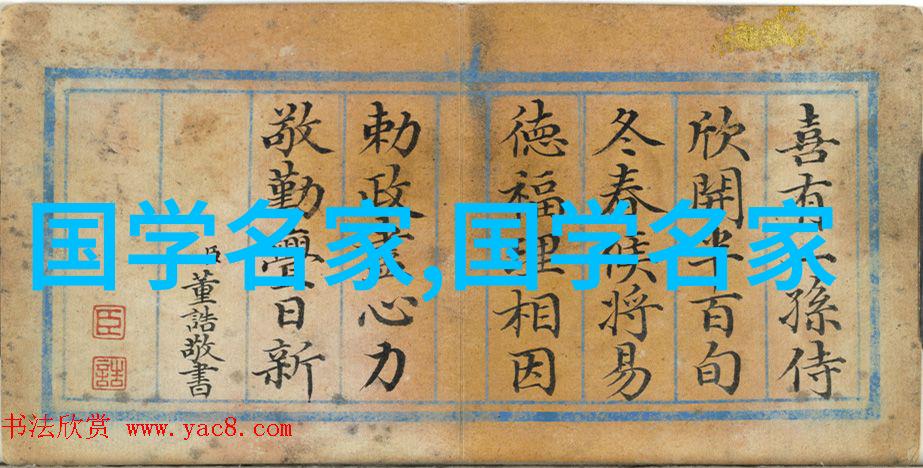 喜有孫侍
欣開半百旬
冬春候將易
徳福理相因
勅政心力
敬勤日新
臣董誥敬書
臣
誥
国学名家,国学名家
书法欣赏 www.yac8.com